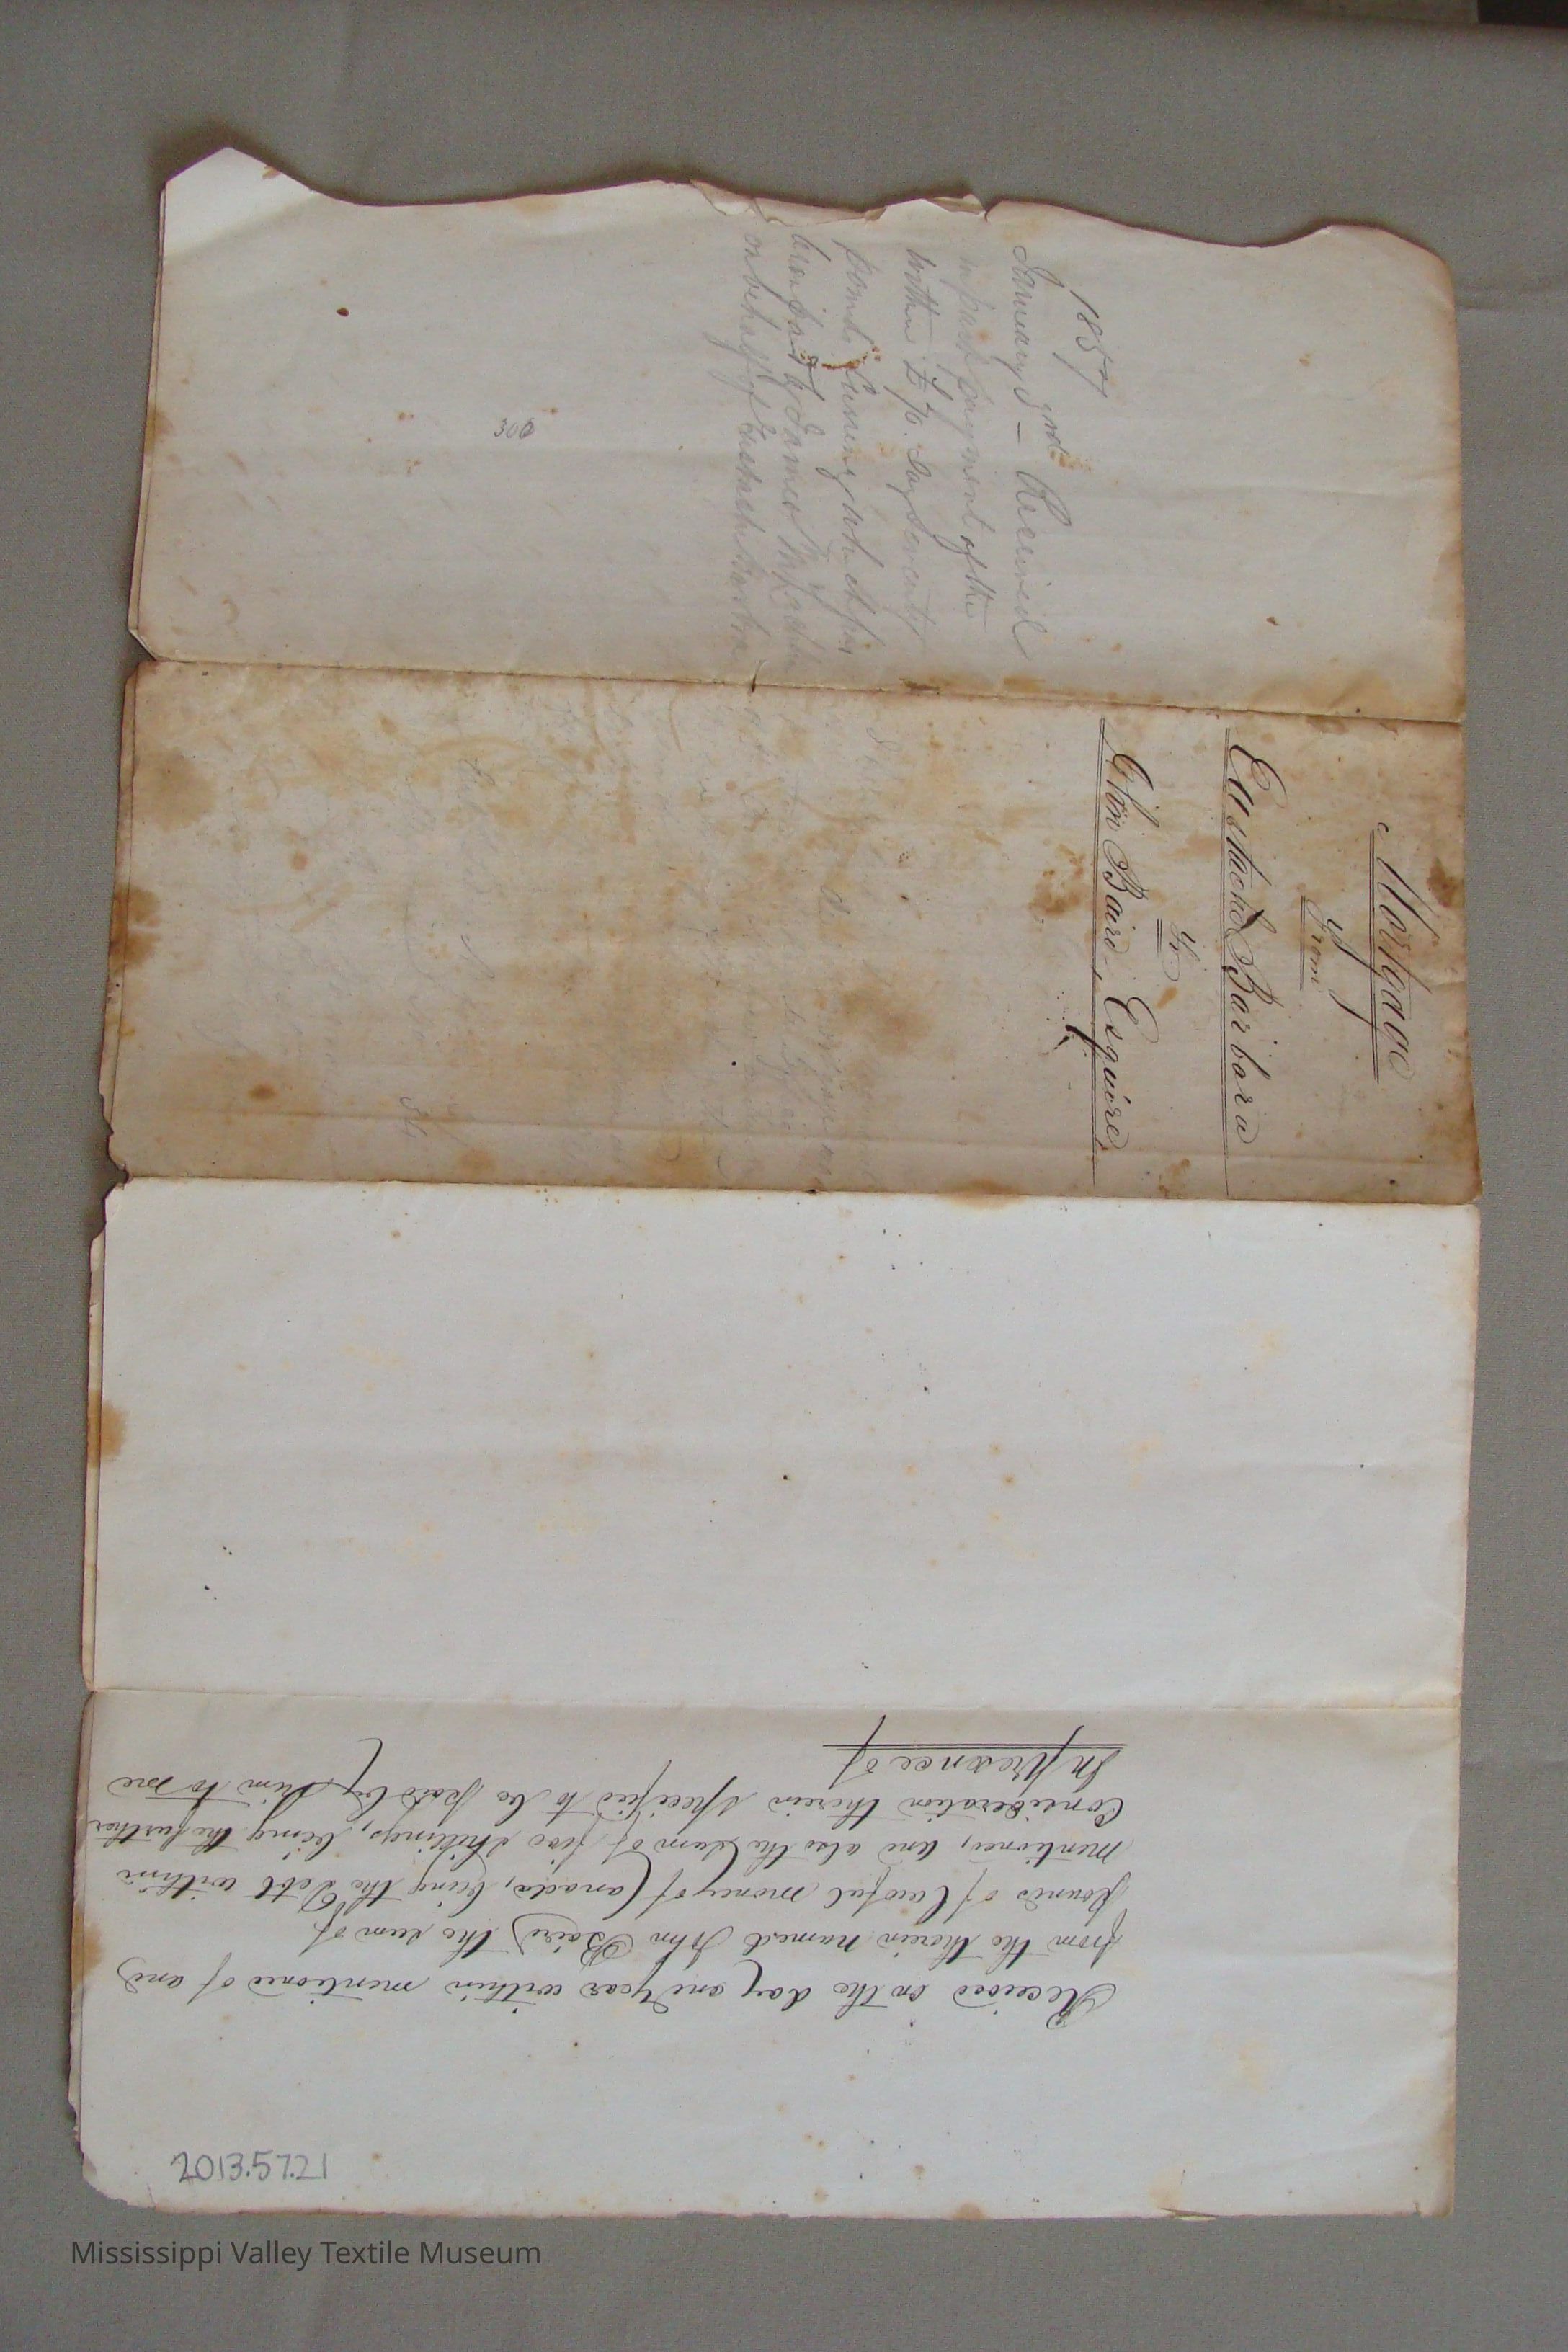 1857
January 2nd – Received
in part payment of the
within £70. Say Seventy
pounds Currency which has
been paid by James
on behalf of Eustache Barbra
300
Mortgage
From
Eustache Barbara
To
John Baird, Esquire
Received on the day and year within mentioned of and
from the therein named John Baird the sum of
pounds of lawful money of Canada, being the Debt within
mentioned, and also the Sum of five shillings, being the further
Consideration therein specified to be paid by him to me
In presence of
2013.57.21
Mississippi Valley Textile Museum